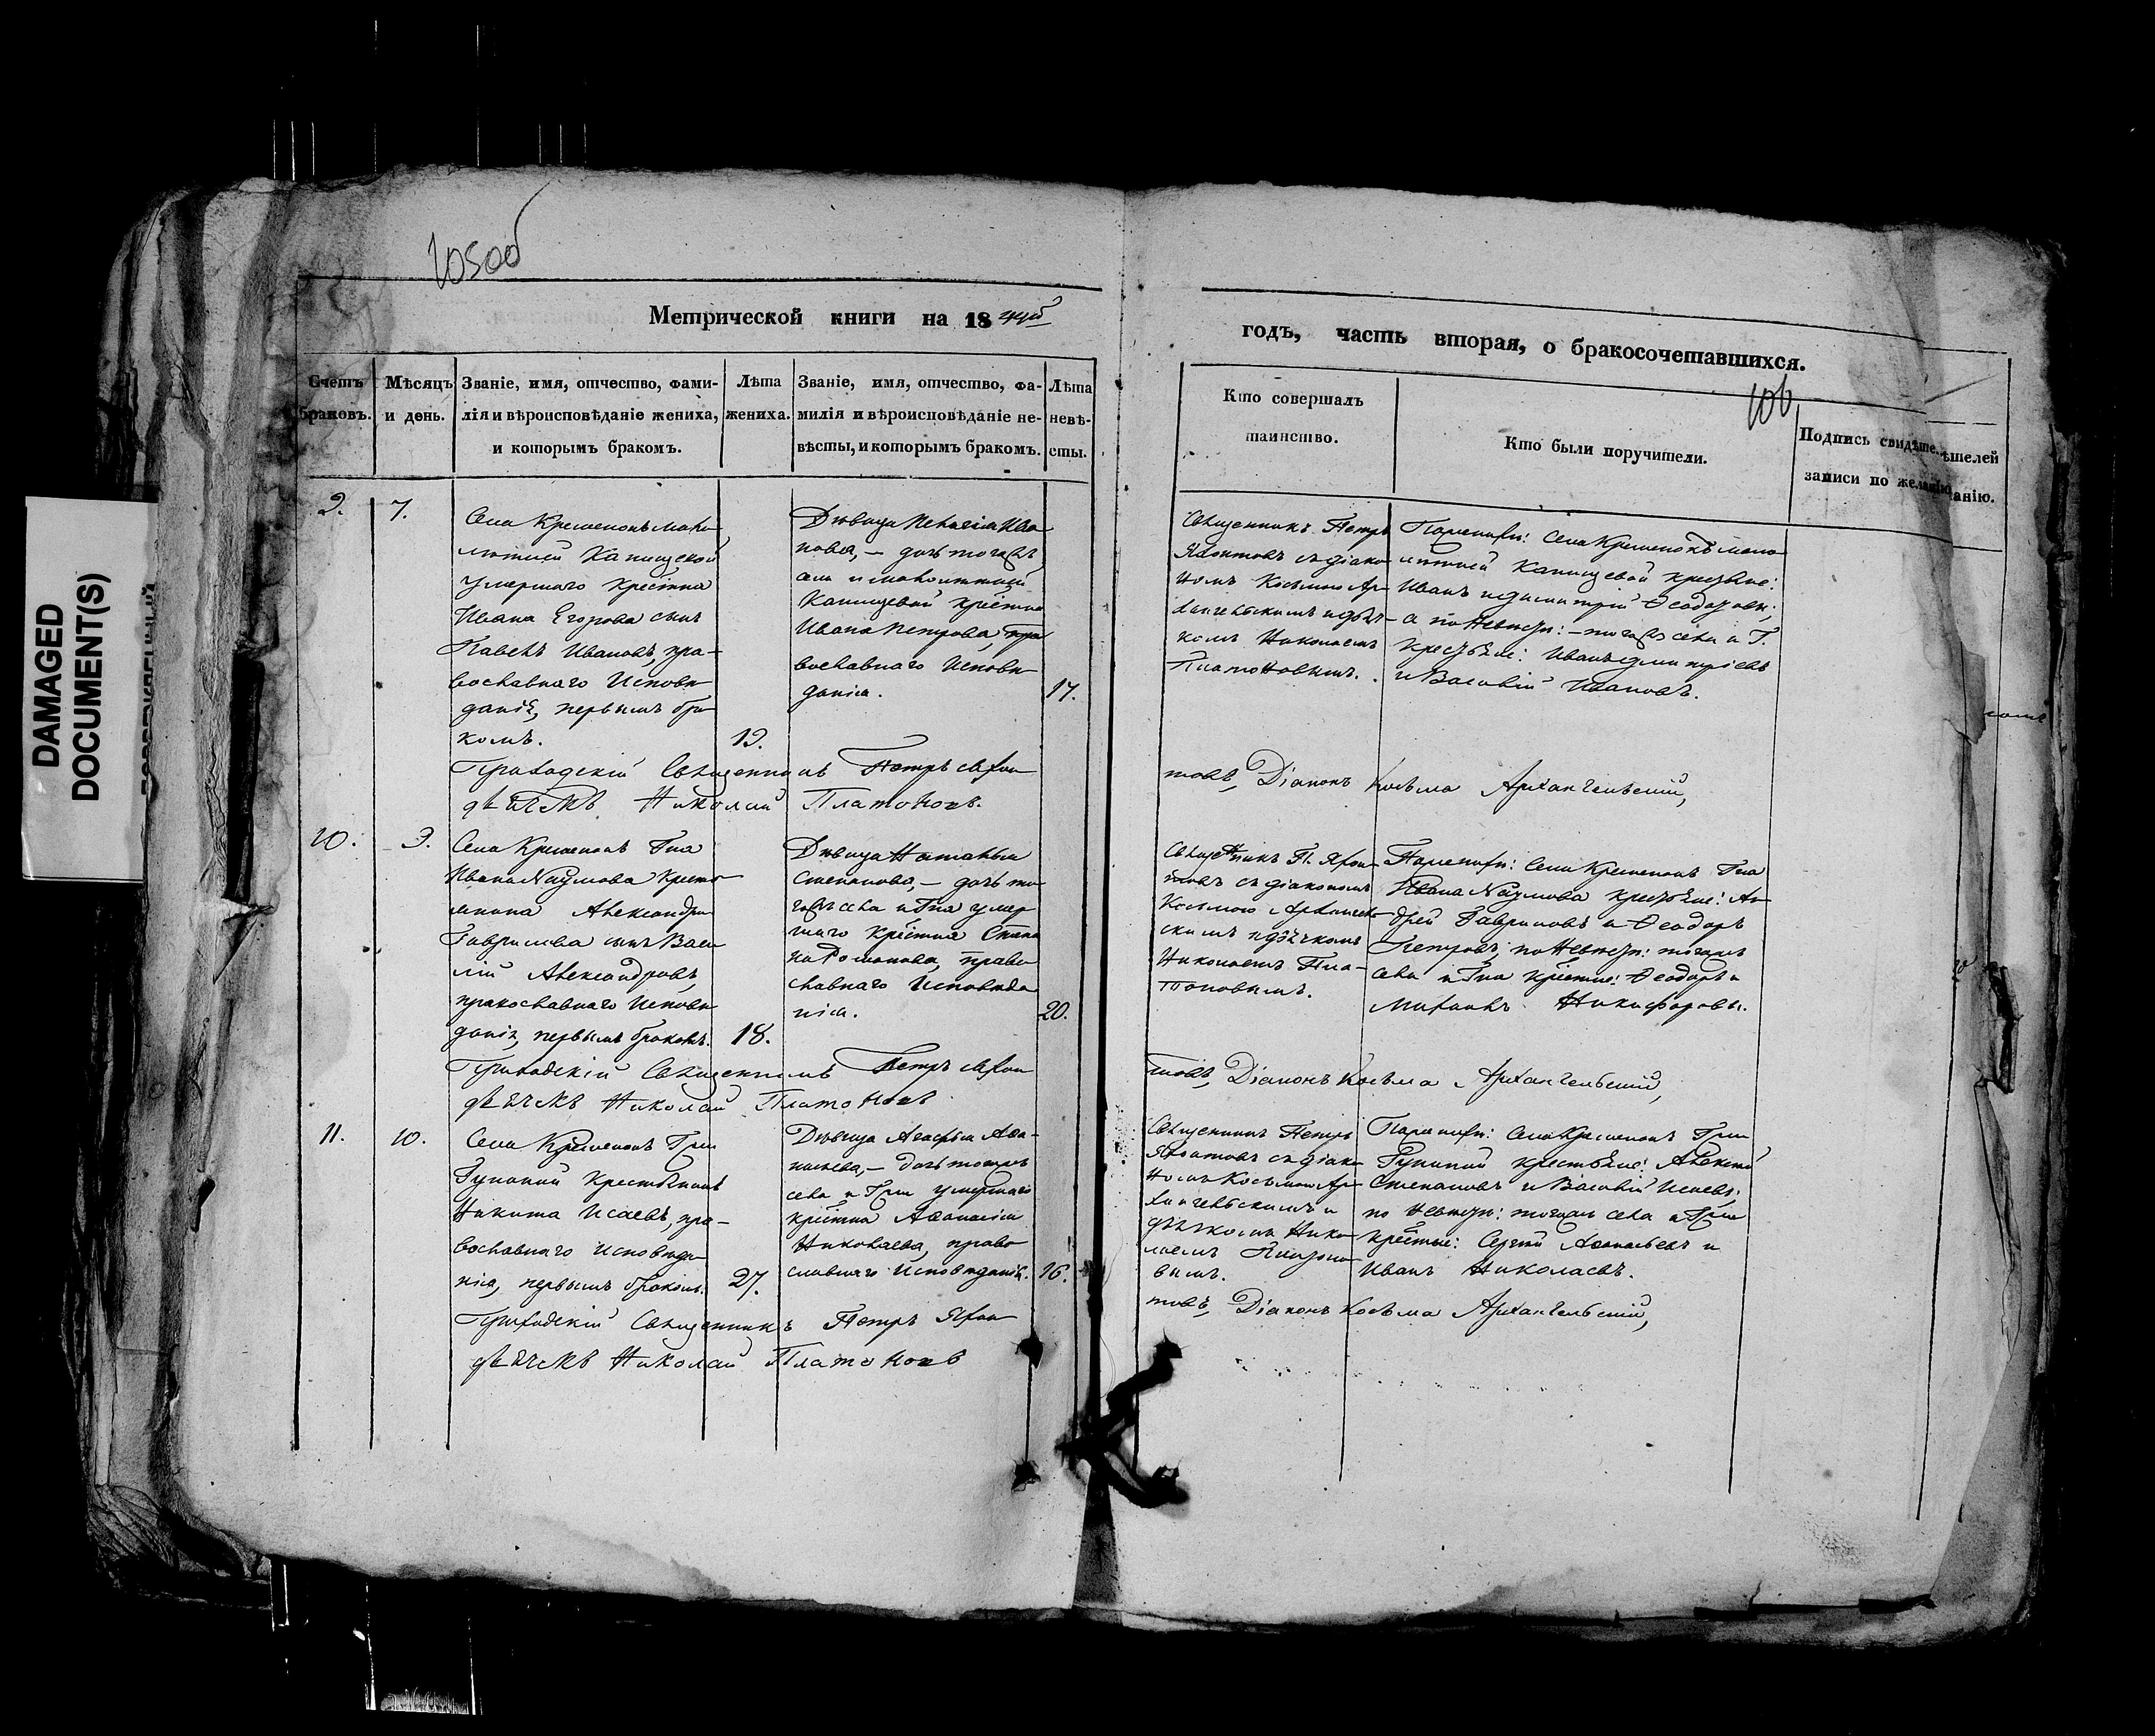 DAMAGED
DOCUMENT(S)
105об
Метрической книги на 18
годъ, часть вторая, о бракосочетавшихся.
106
Счетъ браковъ.
Мѣсяцъ и день.
Званіе, имя, отчество, фами-
лія и вѣроисповѣданіе жениха,
и которымъ бракомъ.
Лѣта
жениха.
Званіе, имя, отчество, фа-
милія и вѣроисповѣданіе не-
вѣсты, и которымъ бракомъ.
Лѣта
невѣ-
сты.
Кто совершалъ
таинство.
Кто были поручители.
Подпись свидѣтелей
записи по желанію.
9.
7.
Села Кременокъ мало
лѣтней Капищевой
умершаго Крестна
Ивана Егорова сынъ
Павелъ Ивановъ, пра-
вославнаго Исповѣ
данія, первымъ бра
комъ.
19.
Дѣвица Пелагія Ива
нова, – дочь тогожъ
села и малолѣтней
Капищевой крестна
Ивана Петрова, пра
вославнаго Исповѣ
данія.
17.
Священникъ Петръ
съ діако
номъ Косьмою Ар-
хангельскимъ и дьяч-
комъ Николаемъ
Платоновымъ.
Села Кременокъ мало
лѣтней Капищевой
Иванъ и Димитрій Ѳеодоровы;
а по Невѣст: – тогожъ села и Г.
Иванъ Дмитріевъ
и Василій Ивановъ.
Приходскій Священникъ Петръ
товъ, Діаконъ Косьма Архангельскій,
дьячекъ Николай Платоновъ.
10.
9.
Села Кременокъ Гна
Ивана Наумова Кресть
янина Александра
Гаврилова сынъ Васи
лій Александровъ,
православнаго Исповѣ
данія, первымъ бракомъ.
18.
Дѣвица Наталья
Степанова, – дочь то
гожъ села и Гна умер
шаго Крестна Степа
на Романова, право
славнаго Исповѣда
нія.
20.
Священникъ П.
товъ съ діакономъ
Косьмою Архангель
скимъ и дьячкомъ
Николаемъ Пла-
тоновымъ.
Села Кременокъ Гна
Ивана Наумова Ан
дрей Гавриловъ и Ѳеодоръ
Петровъ; по Невѣст: тогожъ
села и Гна Ѳеодоръ и
Никифоровы.
Приходскій Священникъ Петръ
товъ, Діаконъ Косьма Архангельскій,
дьячекъ Николай Платоновъ
11.
10.
Села Кременокъ Грж
Крестьянинъ
Никита Исаевъ, пра-
вославнаго Исповѣда
нія, первымъ бракомъ.
27.
Дѣвица Агафья Аѳа-
насьева, – дочь тогожъ
села и Грж умершаго
крестна Аѳанасія
Николаева, право
славнаго Исповѣданія.
16.
Священникъ Петръ
съ діако
номъ Косьмою Ар
хангельскимъ и
дьячкомъ Нико
лаемъ Платоно
вымъ.
Села Кременокъ
Алексѣй
Степановъ и Василій Исаевъ;
по Невѣст: тогожъ села
Сергій Аѳанасьевъ и
Иванъ Николаевъ.
Приходскій Священникъ Петръ
товъ, Діаконъ Косьма Архангельскій,
дьячекъ Николай Платоновъ